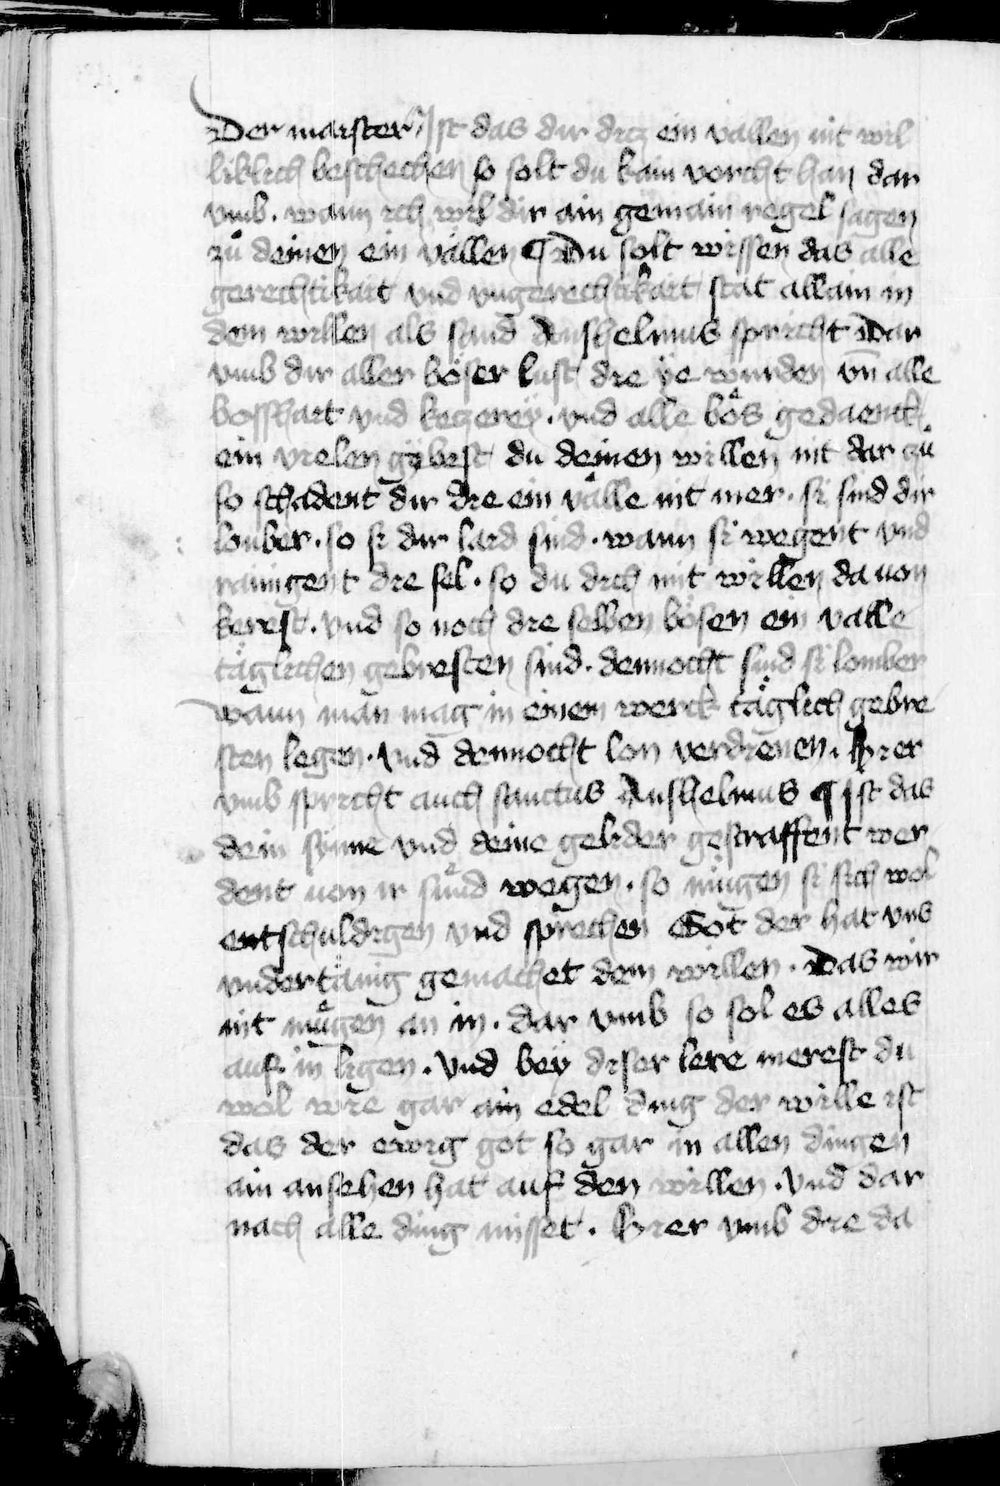 Der maister Ist das dir dicz ein vallen nit wil
liklich beschechen so solt du kain vorcht han dar
vmb . wann ich wil dir ain gemain regel sagen
zů deinen ein vällen ¶ Du solt wissen das alle
gerechtikait vnd vngerechtikait stät allain in
dem willen als sand Anshelmus spricht Dar
vmb dir aller böser lust die ÿe wurden vn̄ alle
bosshait vnd keczereÿ . vnd alle bös gedaenck
ein vielen gÿbest du deinen willen nit dar zů
so schadent dir die ein välle nit mer . si sind dir
lonber . so si dir laid sind . wann si wegent vnd
rainigent die sel . so du dich mit willen da uon
kerest . vnd so noch die selben bösen ein valle
täglichen gebresten sind . dennocht sind si lomber
wann man mag in einem werck täglich gebre
sten legen . vnd dennocht lon verdienen . Hier
vmb spricht auch sanctus Anshelmus ¶ Ist das
dein sÿnne vnd deine gelider gestraffent wer
dent uon ir sünd wegen . so mügen si sich wol
entschuldigen vnd sprechen Got der hat vns
vndertänig gemachet dem willen . Das wir
nit mügen an in . dar vmb so sol es alles
auf in ligen . Vnd beÿ diser lere merest du
wol wie gar ain edel ding der wille ist
das der ewig got so gar in allen dingen
ain ansehen hat auf den willen . Vnd dar
nach alle ding misset . Hier vmb die da